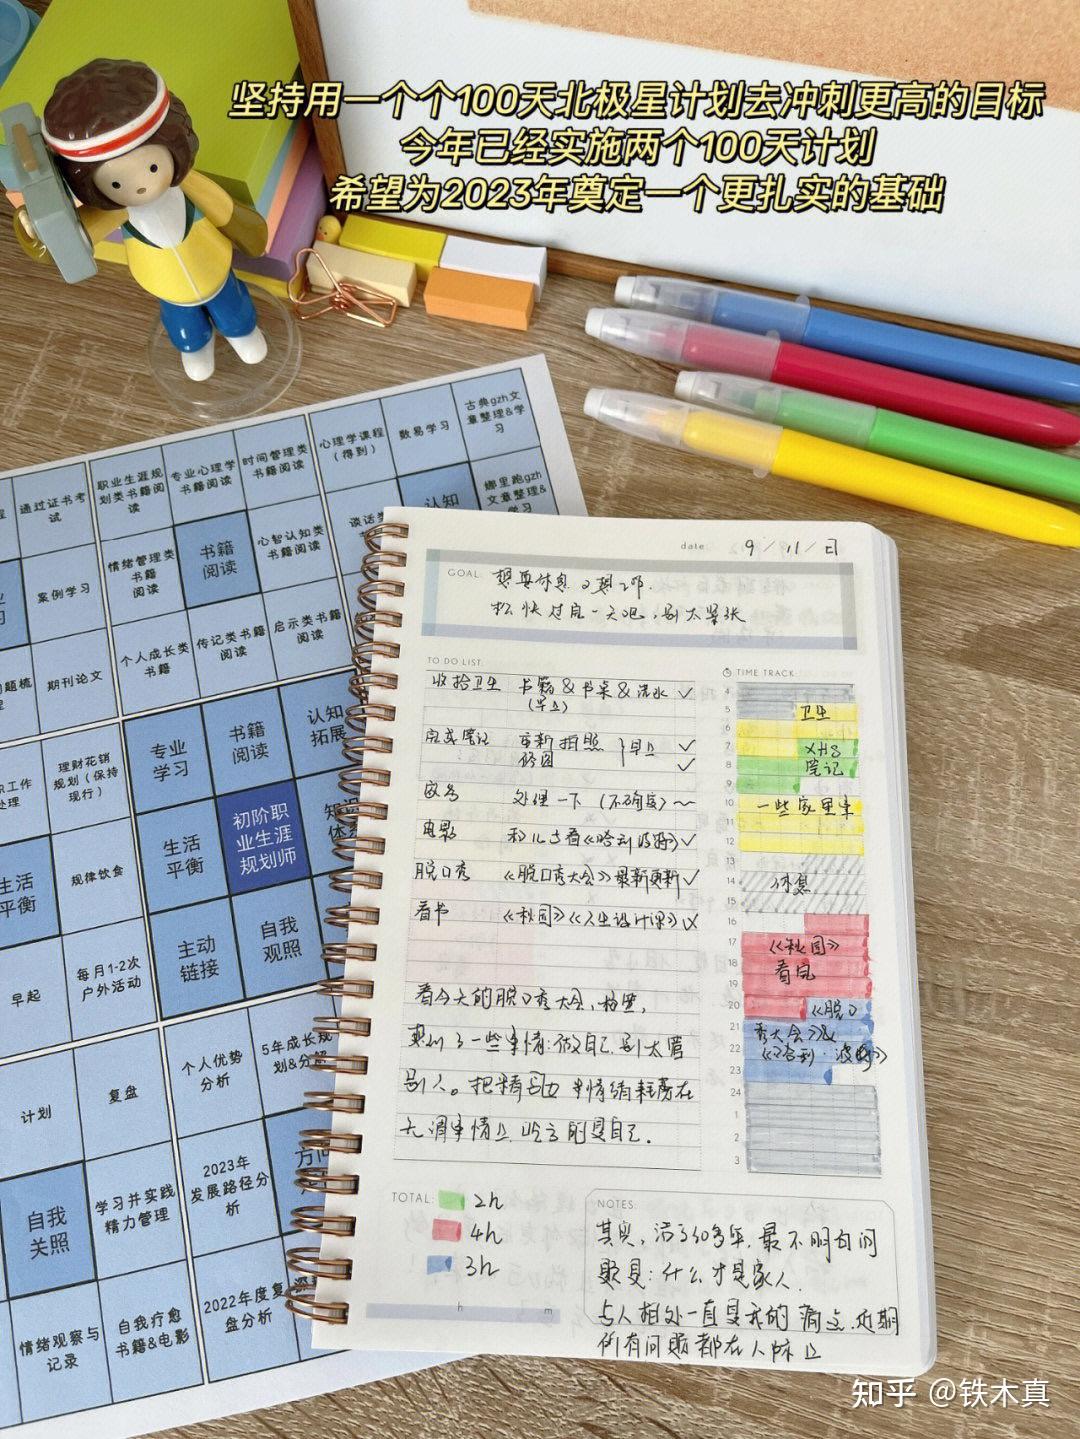 坚持用一个个100天北极星计划去冲刺更高的目标
今年已经实施两个100天计划
希望为2023年奠定一个更扎实的基础
通过证书考试
职业生涯规划类书籍阅读
专业心理学书籍阅读
时间管理类书籍阅读
心理学课程（得到）
数易学习
古典gzh文章整理&学习
案例学习
情绪管理类书籍阅读
书籍阅读
心智认知类书籍阅读
谈话类
认知
娜里跑gzh文章整理&学习
期刊论文
个人成长类书籍
传记类书籍阅读
启示类书籍阅读
理财花销规划（保持现行）
专业学习
书籍阅读
认知拓展
生活平衡
规律饮食
生活平衡
初阶职业生涯规划师
早起
每月1-2次户外活动
主动链接
自我观照
计划
复盘
个人优势分析
5年成长规划&分解
自我关照
学习并实践精力管理
2023年发展路径分析
情绪观察与记录
自我疗愈书籍&电影
2022年度复盘分析
date: 9/11/日
GOAL: 想要休息又想工作.
松快过完一天吧,别太紧张
TO DO LIST:
收拾卫生 书籍&书桌&洗水 ✓
(早上)
重新拍照 } 早上 ✓
修图 ✓
处理一下 (不确定) ~
电影 和儿子看《哈利波特》 ✓
脱口秀 《脱口秀大会》最新更新 ✓
看书 《秋园》《人生设计课》
看今天的脱口秀大会,
了一些事情:做自己,别太管
别人。把精力 情绪耗费在
无谓事情上,吃亏的是自己.
TIME TRACK
4
5 卫生
6
7 XHS
8 笔记
9
10 一些家里事
11
12
13
14 休息
15
16
17 《秋园》
18 看完
19
20 《脱口
21 秀大会》&
22 《哈利·波特》
23
24
1
2
3
TOTAL: 2h
4h
3h
h m
NOTES:
其实,活了30多年,最不明白的
题是:什么才是家人.
与人相处一直是我的痛点.近期
所有问题都在人际上
知乎 @铁木真